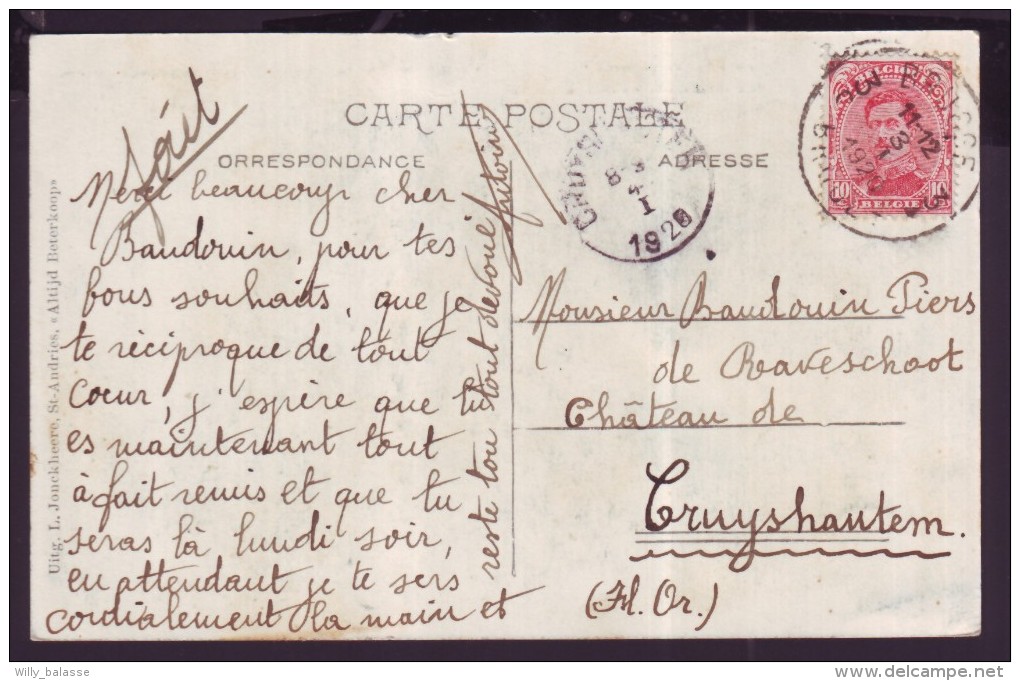 CARTE POSTALE
ORRESPONDANCE
ADRESSE
Merci beaucoup cher
Baudouin, pour tes
bons souhaits, que je
te réciproque de tout
cœur, j'espère que tu
es maintenant tout
à fait remis et que tu
seras là lundi soir,
en attendant je te sers
cordialement la main et
reste ton tout dévoué
Monsieur Baudouin Piers
de Raveschoot
Château de
Cruyshautem.
(Fl. Or.)
BELGIQUE
10 10
BELGIE
11-12
1920
8
1920
Uitg. L. Jonckheere, St-Andries, «Altijd Beterkoop»
Willy_balasse